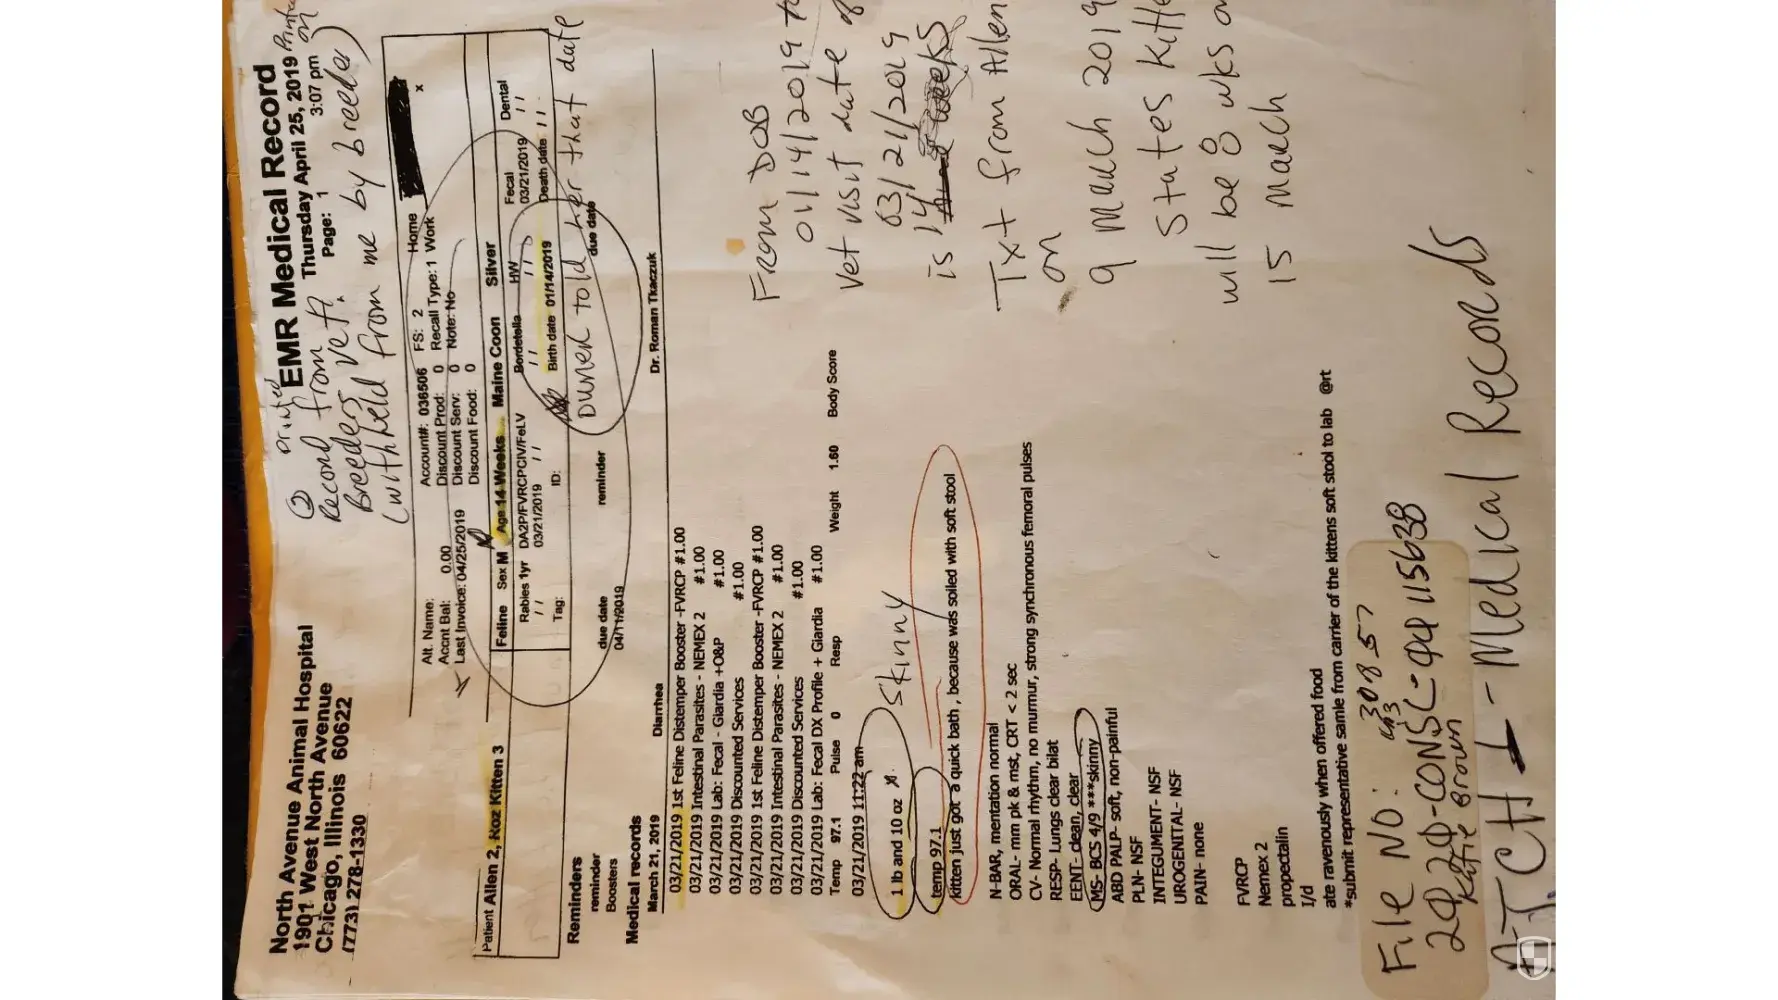 North Avenue Animal Hospital
1901 West North Avenue
Chicago, Illinois 60622
(773) 278-1330
② printed
EMR Medical Record
Thursday April 25, 2019
Page: 1 3:07 pm
Record from
Breeders Vet.
(withheld from me by breeder)
Alt. Name:
Accnt Bal: 0.00
Last Invoice: 04/25/2019
Account#: 036506 FS: 2
Discount Prod: 0
Discount Serv: 0
Discount Food: 0
Home
Recall Type: 1 Work
Note: No
x
Patient Allen 2, Roz Kitten 3
Feline Sex M Age 14 Weeks Maine Coon Silver
Rabies 1yr DA2P/FVRCPCIV/FeLV Bordetella HW Fecal Dental
/ / 03/21/2019 / / / / / 03/21/2019 / /
Tag: ID: Birth date 01/14/2019 Death date / /
owner told her that date
Reminders
reminder due date reminder due date
Boosters 04/11/2019
Medical records
March 21, 2019 Diarrhea Dr. Roman Tkaczuk
03/21/2019 1st Feline Distemper Booster -FVRCP #1.00
03/21/2019 Intestinal Parasites - NEMEX 2 #1.00
03/21/2019 Lab: Fecal - Giardia +O&P #1.00
03/21/2019 Discounted Services #1.00
03/21/2019 1st Feline Distemper Booster -FVRCP #1.00
03/21/2019 Intestinal Parasites - NEMEX 2 #1.00
03/21/2019 Discounted Services #1.00
03/21/2019 Lab: Fecal DX Profile + Giardia #1.00
Temp 97.1 Pulse 0 Resp Weight 1.60 Body Score
03/21/2019 11:22 am
1 lb and 10 oz
Skinny
temp 97.1
kitten just got a quick bath , because was soiled with soft stool
N-BAR, mentation normal
ORAL- mm pk & mst, CRT < 2 sec
CV- Normal rhythm, no murmur, strong synchronous femoral pulses
RESP- Lungs clear bilat
EENT- clean, clear
MS- BCS 4/9 ***skinny
ABD PALP- soft, non-painful
PLN- NSF
INTEGUMENT- NSF
UROGENITAL- NSF
PAIN- none
FVRCP
Nemex 2
propectalin
I/d
ate ravenously when offered food
*submit representative samle from carrier of the kittens soft stool to lab @rt
From DOB
01/14/2019 to
vet visit date of
03/21/2019
is 14 weeks
Txt from Allen
on
9 March 2019
States Kitte
will be 8 wks o
15 March
File NO: 30857
2020-CONSC-00115638
Katie Brown
ATCH 1 - Medical Records